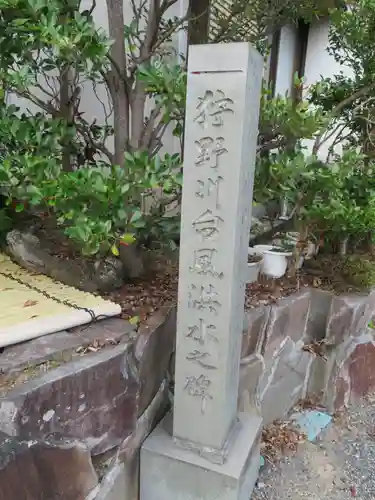 狩野川台風洪水之碑